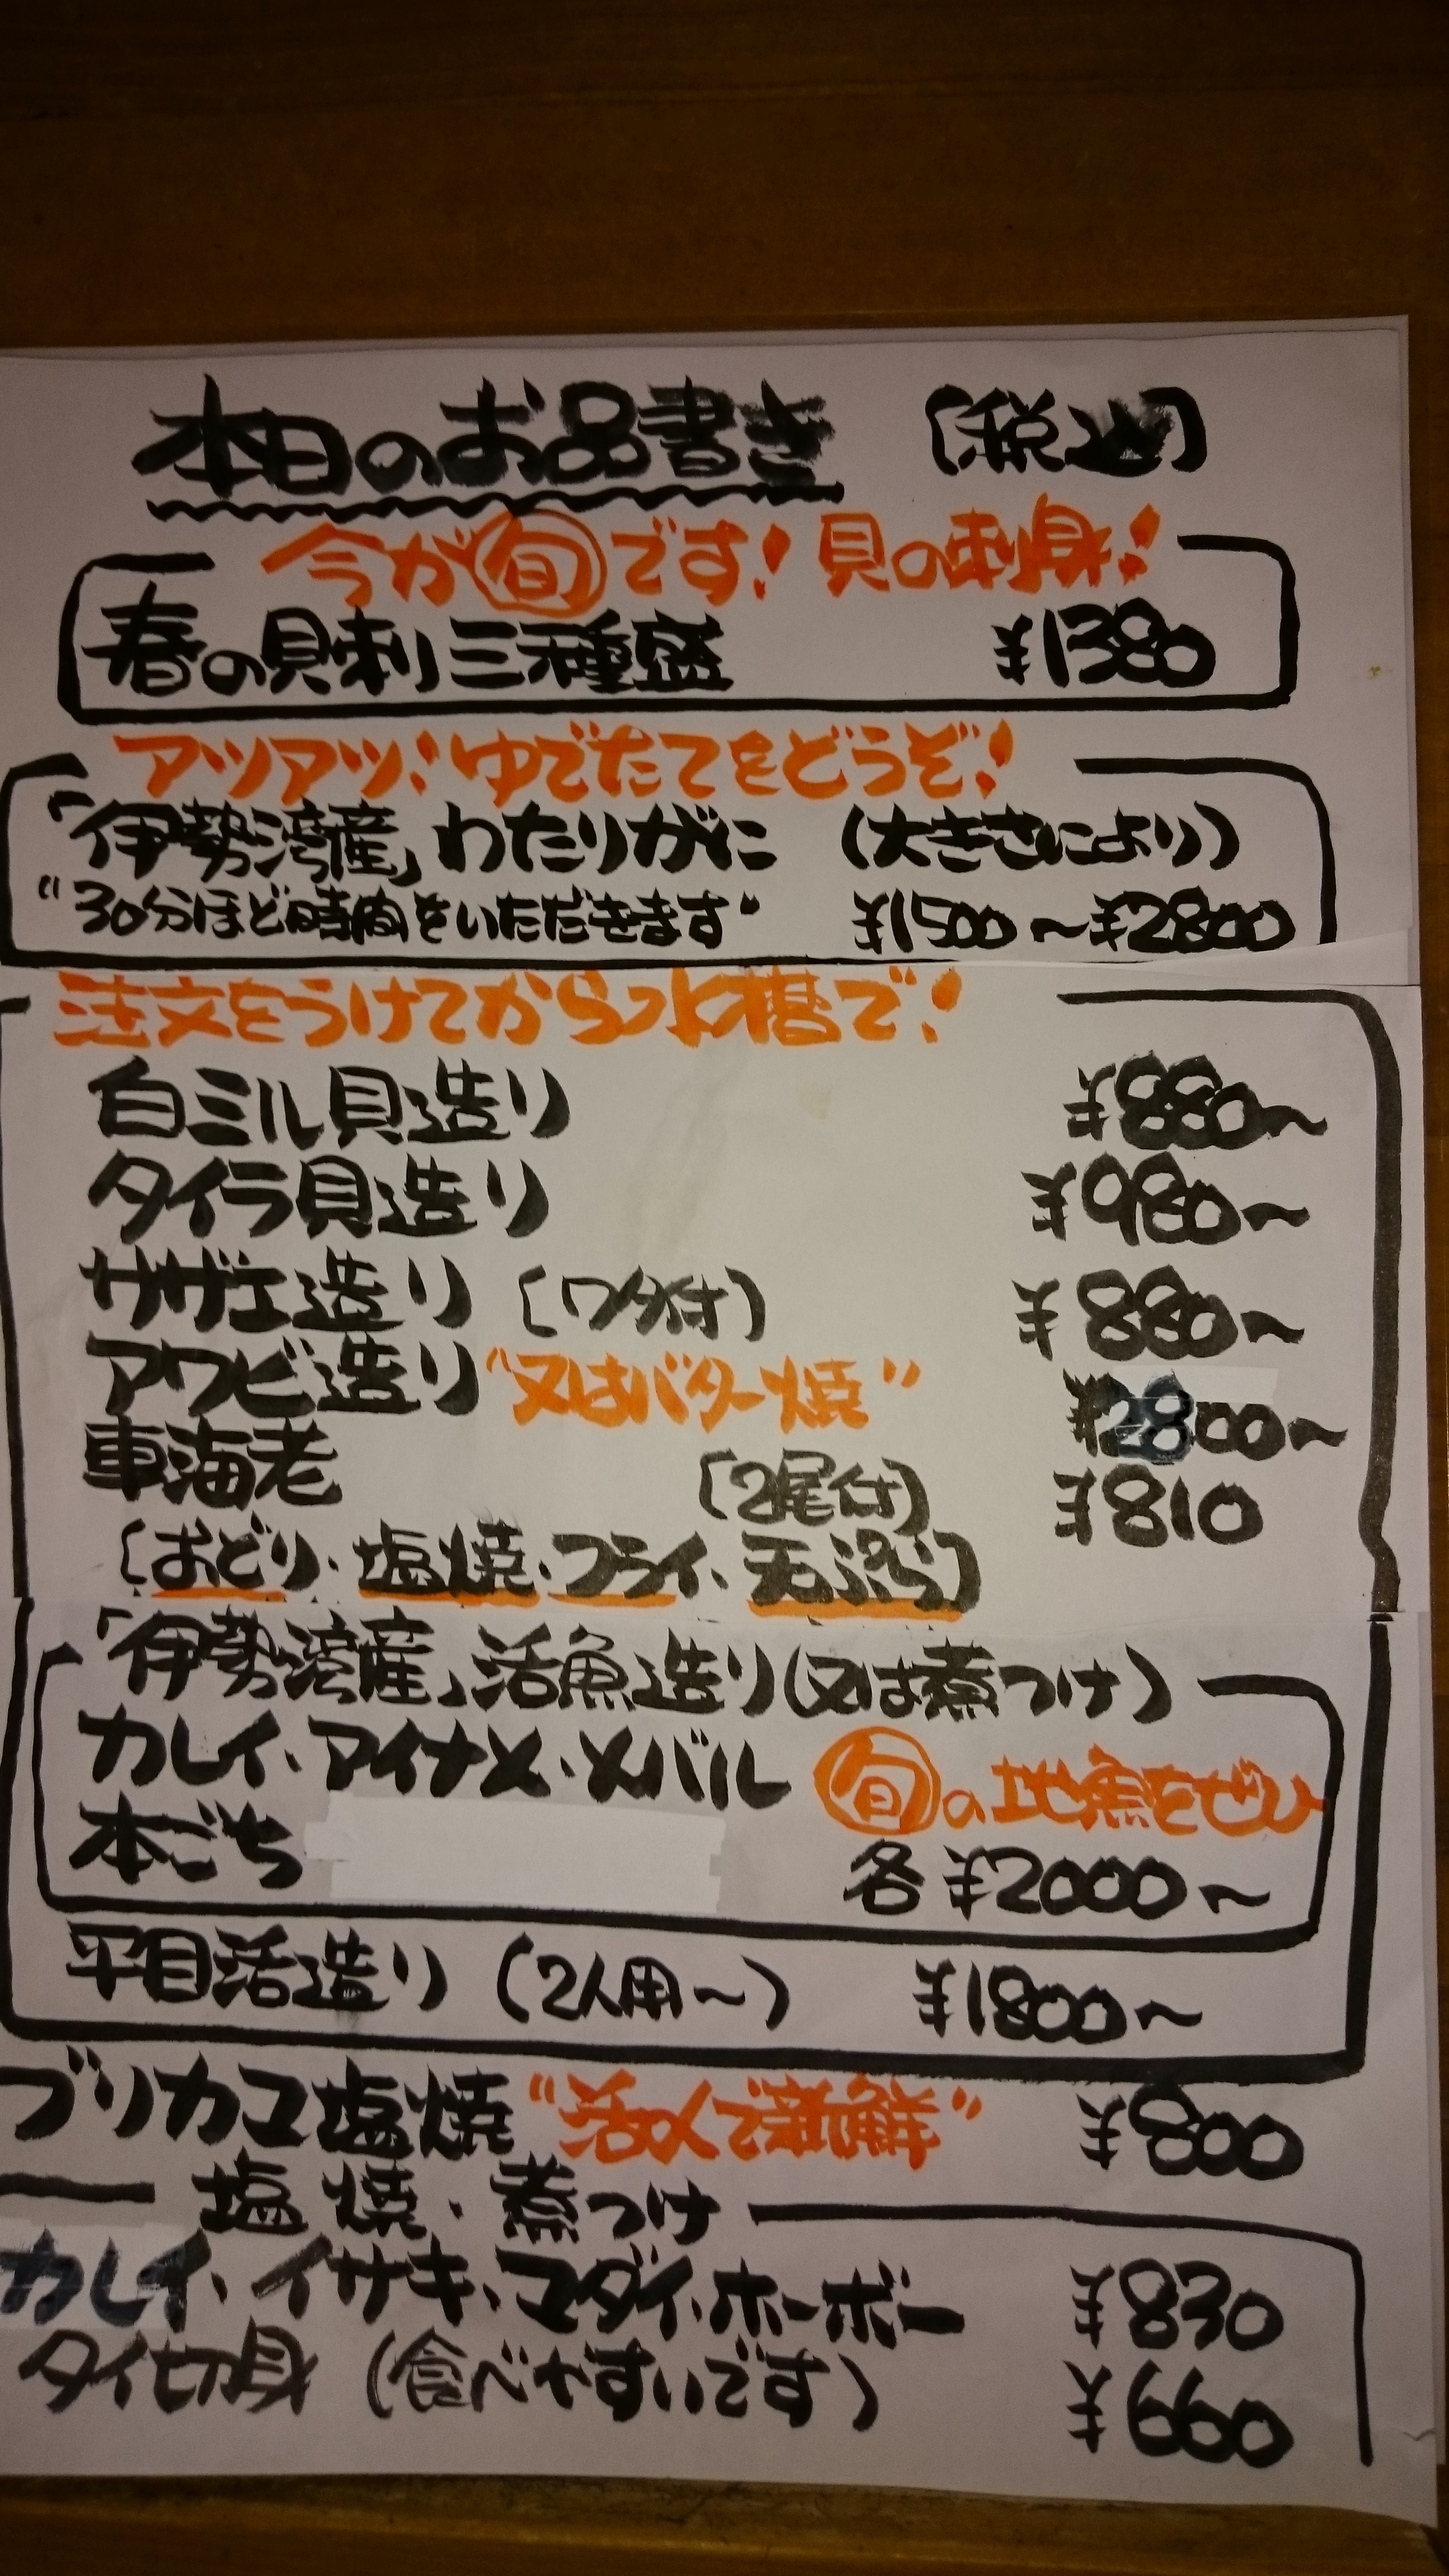 本日のお品書き 〔税込〕
今が旬です！貝の刺身！
春の貝刺三種盛 ¥1380
アツアツ！ゆでたてをどうぞ！
「伊勢湾産」わたりがに （大きさにより）
“30分ほど時間をいただきます” ¥1500〜¥2800
注文をうけてから水槽で！
白ミル貝造り ¥880〜
タイラ貝造り ¥980〜
サザエ造り 〔ワタ付〕 ¥880〜
アワビ造り“又はバター焼” ¥2800〜
車海老 〔2尾付〕 ¥810
〔おどり・塩焼・フライ・天ぷら〕
「伊勢湾産」活魚造り（又は煮つけ）
カレイ・アイナメ・メバル 旬の地魚をぜひ
本ごち 各 ¥2000〜
平目活造り （2人用〜） ¥1800〜
ブリカマ塩焼“活〆で新鮮” ¥800
塩焼・煮つけ
カレイ・イサキ・マダイ・ホーボー ¥830
タイ切身 （食べやすいです） ¥660